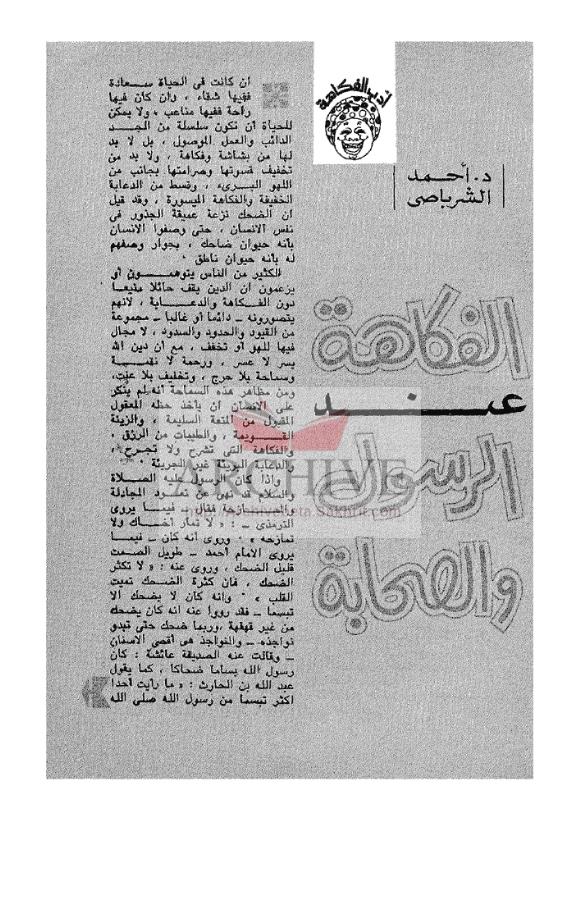 أدب الفكاهة
د. أحمد
الشرباصى
الفكاهة
عند
الرسول
والصحابة
ان كانت فى الحياة سعادة
ففيها شقاء ، وان كان فيها
راحة ففيها متاعب ، ولا يمكن
للحياة أن تكون سلسلة من الجد
الدائب والعمل الموصول ، بل لا بد
لها من بشاشة وفكاهة ، ولا بد من
تخفيف قسوتها وصرامتها بجانب من
اللهو البرىء ، وقسط من الدعابة
الخفيفة والفكاهة الميسورة ، وقد قيل
ان الضحك نزعة عميقة الجذور فى
نفس الانسان ، حتى وصفوا الانسان
بأنه حيوان ضاحك ، بجوار وصفهم
له بأنه حيوان ناطق ·
الكثير من الناس يتوهمون أو
يزعمون أن الدين يقف حائلا منيعا
دون الفكاهة والدعابة ، لانهم
يتصورونه ــ دائما أو غالبا ــ مجموعة
من القيود والحدود والسدود ، لا مجال
فيها للهو أو تخفف ، مع أن دين الله
يسر لا عسر ، ورحمة لا نقمة
وسماحة بلا حرج ، وتخفيف بلا عنت،
ومن مظاهر هذه السماحة أنه لم ينكر
على الانسان أن يأخذ حظه المعقول
المقبول من المتعة السليمة ، والزينة
القويمة ، والطيبات من الرزق ،
والفكاهة التى تشرح ولا تجرح ،
والدعابة البريئة غير الجريئة ·
واذا كان الرسول عليه الصلاة
والسلام قد نهى عن تعود المجادلة
والممازحة فقال ــ فيما يروى
الترمذى ــ : « لا تمار أخاك ولا
تمازحه » · وروى أنه كان ــ فيما
يروى الامام أحمد ــ طويل الصمت
قليل الضحك ، وروى عنه : « لا تكثر
الضحك ، فان كثرة الضحك تميت
القلب » · وانه كان لا يضحك الا
تبسما ــ فقد رووا عنه أنه كان يضحك
من غير قهقهة ، وربما ضحك حتى تبدو
نواجذه ــ والنواجذ هى أقصى الاسنان
ــ وقالت عنه الصديقة عائشة : كان
رسول الله بساما ضحاكا ، كما يقول
عبد الله بن الحارث : « ما رأيت أحدا
أكثر تبسما من رسول الله صلى الله
ARCHIVE
http://Archivebeta.Sakhrit.com